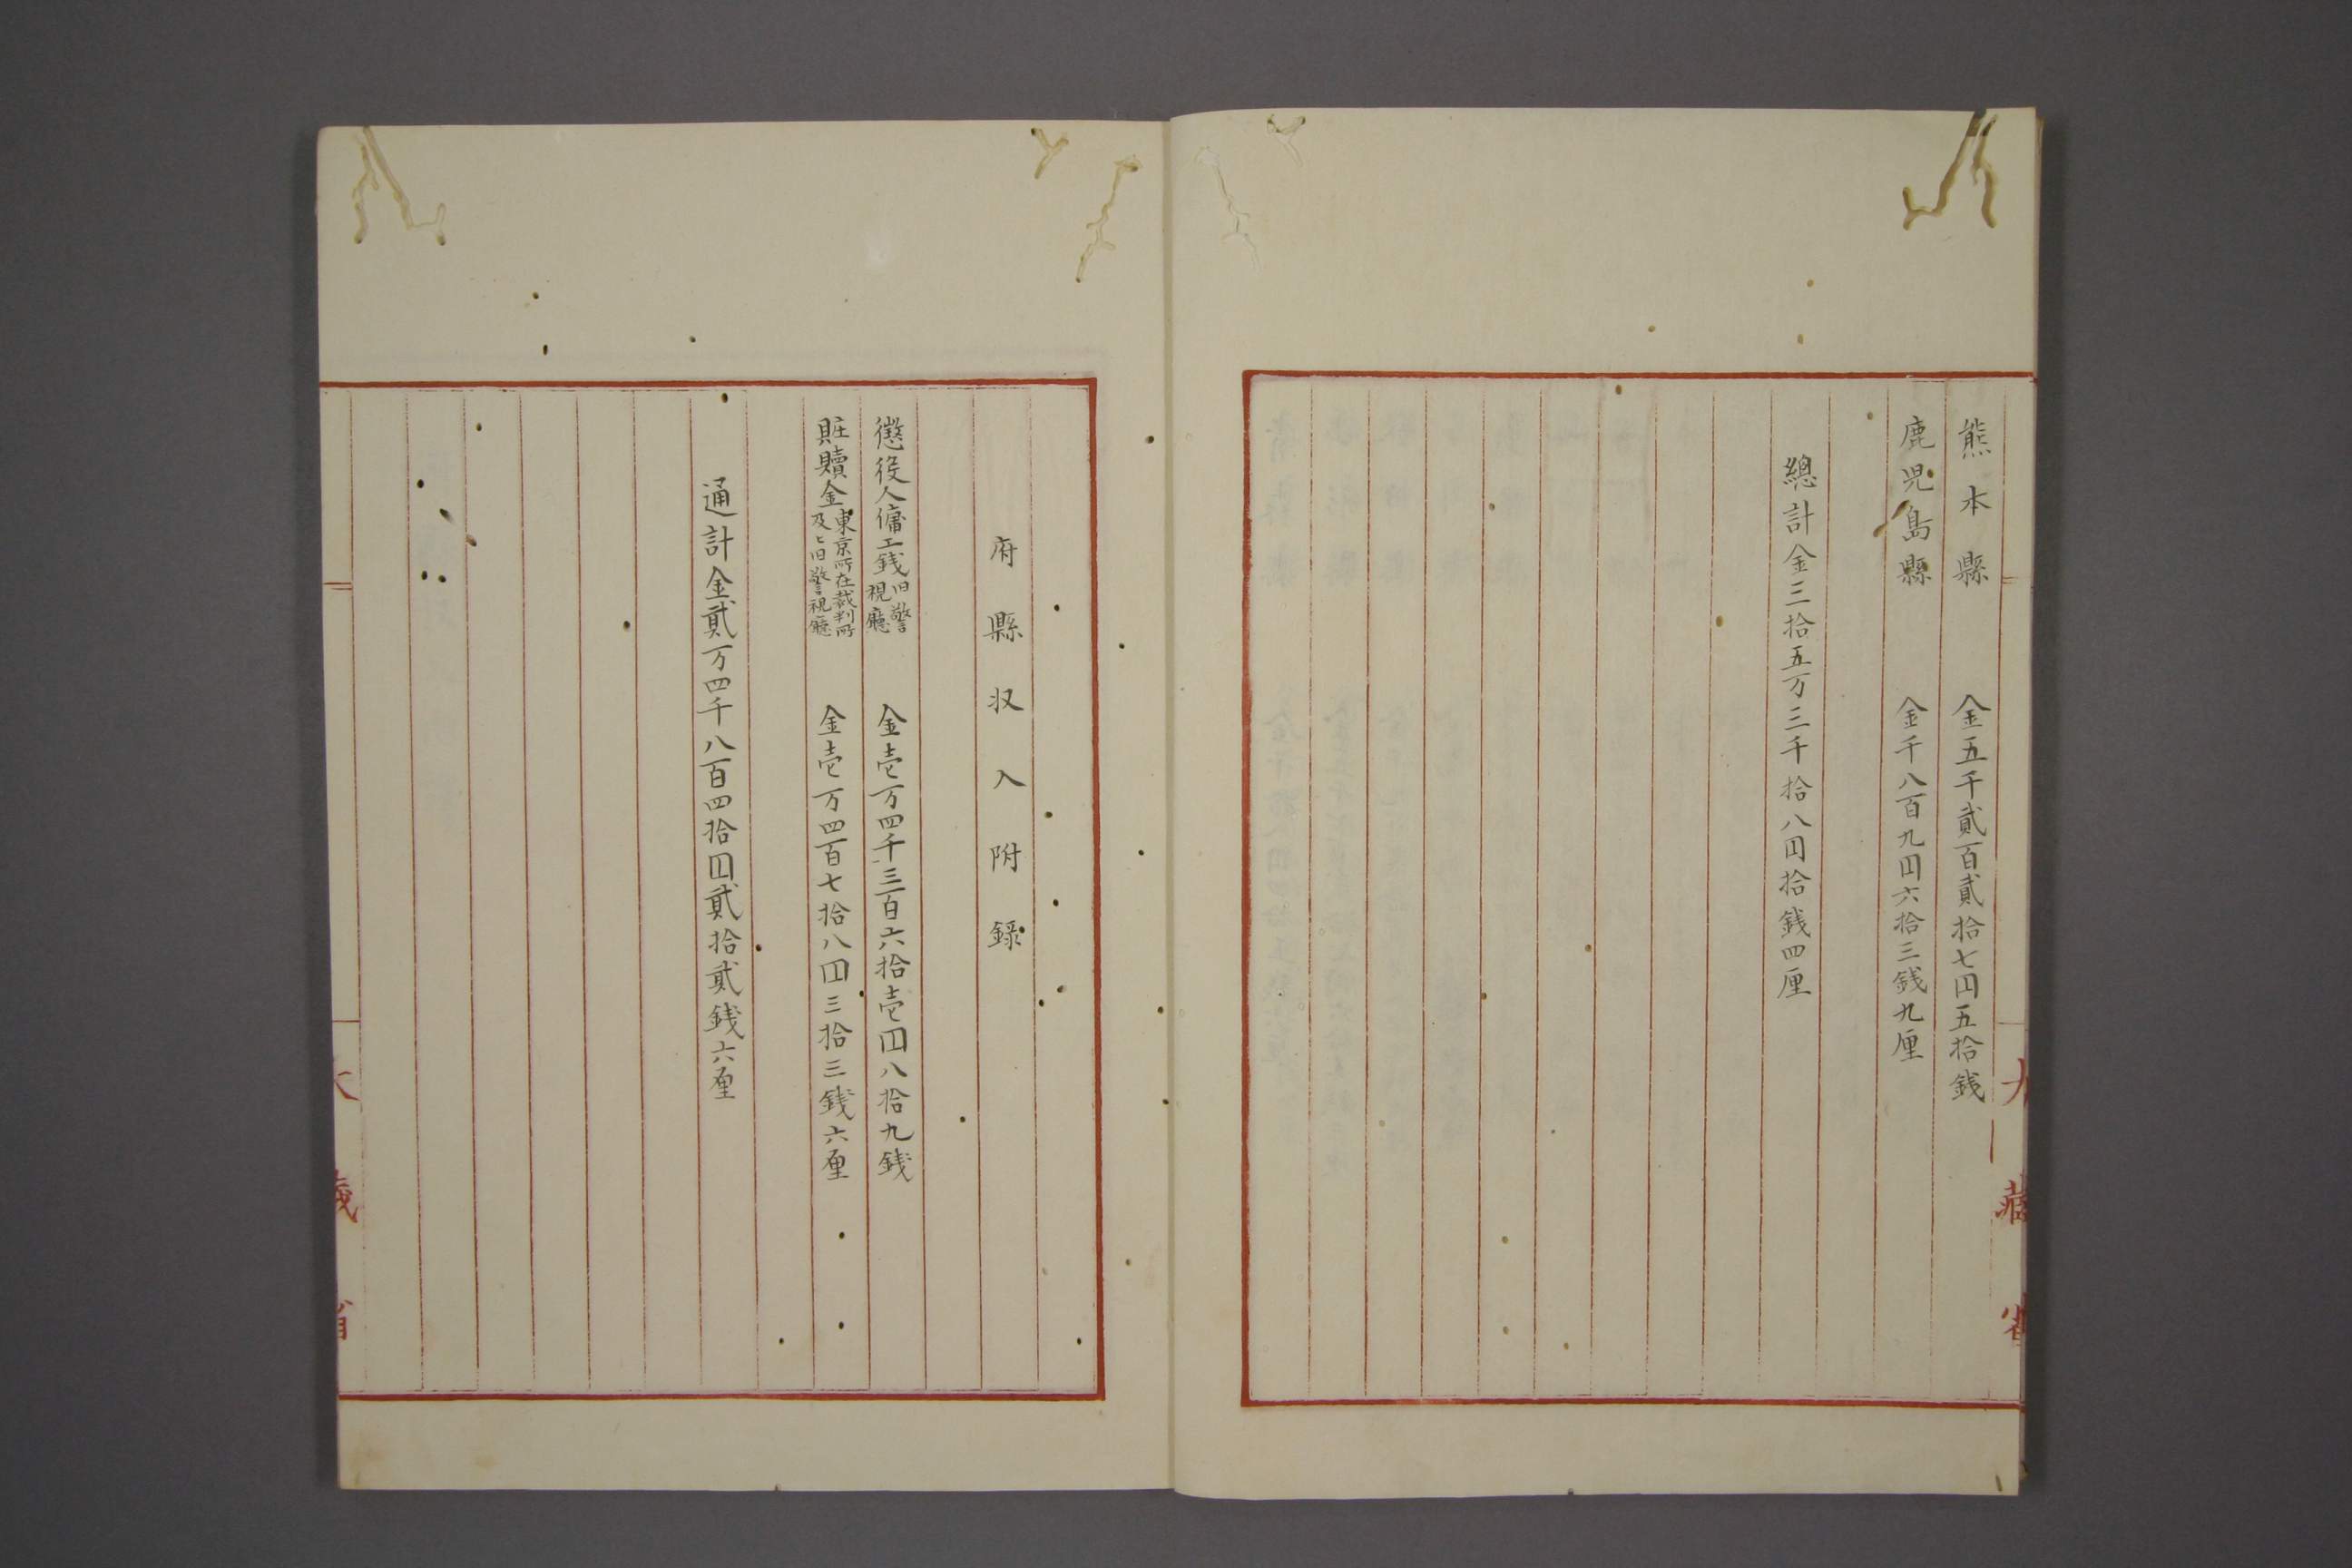 熊本縣 金五千貳百貳拾七円五拾銭
鹿児島縣 金千八百九円六拾三銭九厘
總計金三拾五万三千拾八円拾銭四厘
大藏省
府縣収入附録
懲役人傭工銭旧警視廳 金壱万四千三百六拾壱円八拾九銭
賍贖金東京所在裁判所及ヒ旧警視廳 金壱万四百七拾八円三拾三銭六厘
通計金貳万四千八百四拾円貳拾貳銭六厘
大藏省